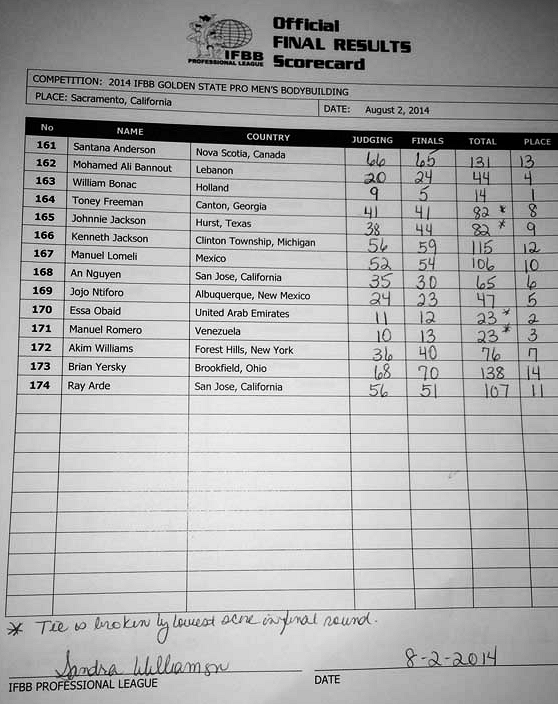 Official
FINAL RESULTS
Scorecard
IFBB
PROFESSIONAL LEAGUE
COMPETITION: 2014 IFBB GOLDEN STATE PRO MEN'S BODYBUILDING
PLACE: Sacramento, California DATE: August 2, 2014
No NAME COUNTRY JUDGING FINALS TOTAL PLACE
161 Santana Anderson Nova Scotia, Canada 66 65 131 13
162 Mohamed Ali Bannout Lebanon 20 24 44 4
163 William Bonac Holland 9 5 14 1
164 Toney Freeman Canton, Georgia 41 41 82 * 8
165 Johnnie Jackson Hurst, Texas 38 44 82 * 9
166 Kenneth Jackson Clinton Township, Michigan 56 59 115 12
167 Manuel Lomeli Mexico 52 54 106 10
168 An Nguyen San Jose, California 35 30 65 6
169 Jojo Ntiforo Albuquerque, New Mexico 24 23 47 5
170 Essa Obaid United Arab Emirates 11 12 23 * 2
171 Manuel Romero Venezuela 10 13 23 * 3
172 Akim Williams Forest Hills, New York 36 40 76 7
173 Brian Yersky Brookfield, Ohio 68 70 138 14
174 Ray Arde San Jose, California 56 51 107 11
* Tie is broken by lowest score in final round.
Sandra Williamson 8-2-2014
IFBB PROFESSIONAL LEAGUE DATE